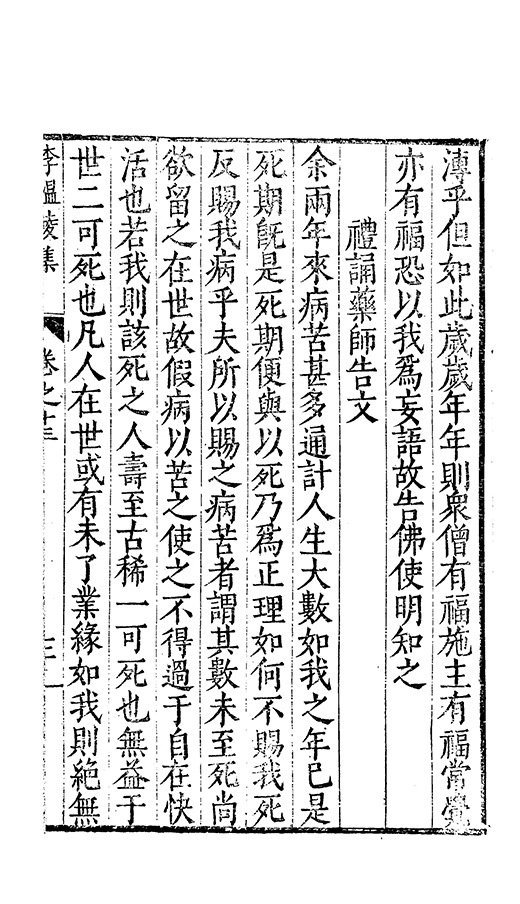 溥乎但如此歲歲年年則衆僧有福施主有福常覺
亦有福恐以我爲妄語故告佛使明知之
禮誦藥師告文
余兩年來病苦甚多通計人生大數如我之年已是
死期旣是死期便與以死乃爲正理如何不賜我死
反賜我病乎夫所以賜之病苦者謂其數未至死尚
欲留之在世故假病以苦之使之不得過于自在快
活也若我則該死之人壽至古稀一可死也無益于
世二可死也凡人在世或有未了業緣如我則絕無
李溫陵集 卷之十三